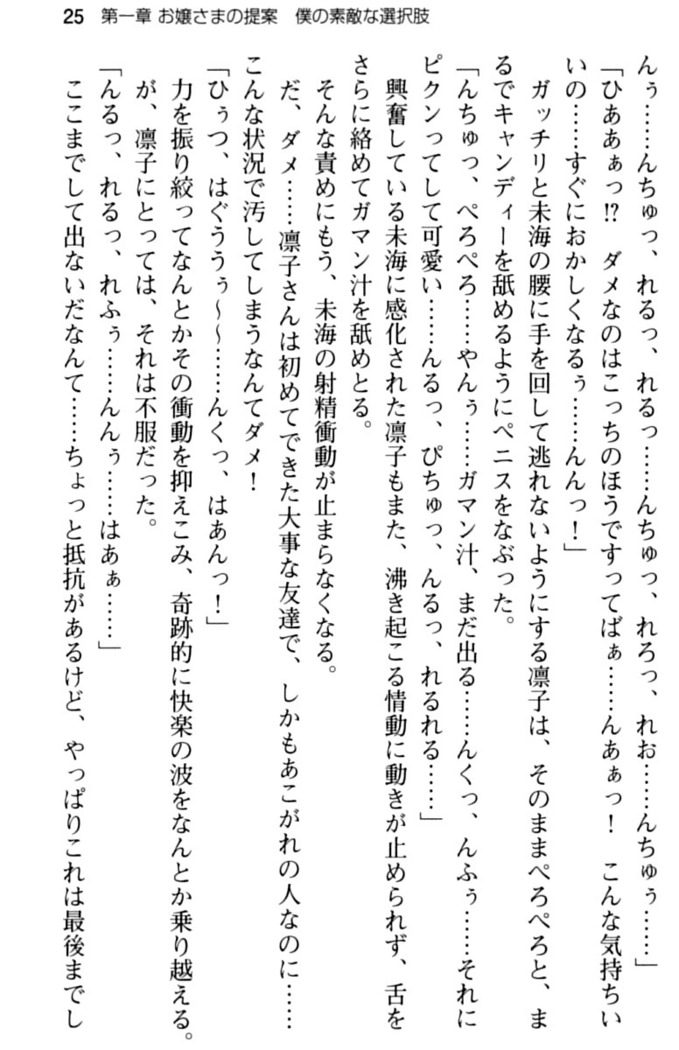 25 第一章 お嬢さまの提案 僕の素敵な選択肢
んぅ……んちゅっ、れるっ、れるっ……んちゅっ、れろっ、れお……んちゅぅ……」
「ひああぁっ!? ダメなのはこっちのほうですってばぁ……んあぁっ! こんな気持ちい
いの……すぐにおかしくなるぅ……んんっ!」
ガッチリと未海の腰に手を回して逃れないようにする凛子は、そのままぺろぺろと、ま
るでキャンディーを舐めるようにペニスをなぶった。
「んちゅっ、ぺろぺろ……やんぅ……ガマン汁、まだ出る……んくっ、んふぅ……それに
ピクンってして可愛い……んるっ、ぴちゅっ、んるっ、れるれる……」
興奮している未海に感化された凛子もまた、沸き起こる情動に動きが止められず、舌を
さらに絡めてガマン汁を舐めとる。
そんな責めにもう、未海の射精衝動が止まらなくなる。
だ、ダメ……凛子さんは初めてできた大事な友達で、しかもあこがれの人なのに……
こんな状況で汚してしまうなんてダメ!
「ひぅつ、はぐううぅ~~……んくっ、はあんっ!」
力を振り絞ってなんとかその衝動を抑えこみ、奇跡的に快楽の波をなんとか乗り越える。
が、凛子にとっては、それは不服だった。
「んるっ、れるっ、れふぅ……んんぅ……はあぁ……」
ここまでして出ないだなんて……ちょっと抵抗があるけど、やっぱりこれは最後までし